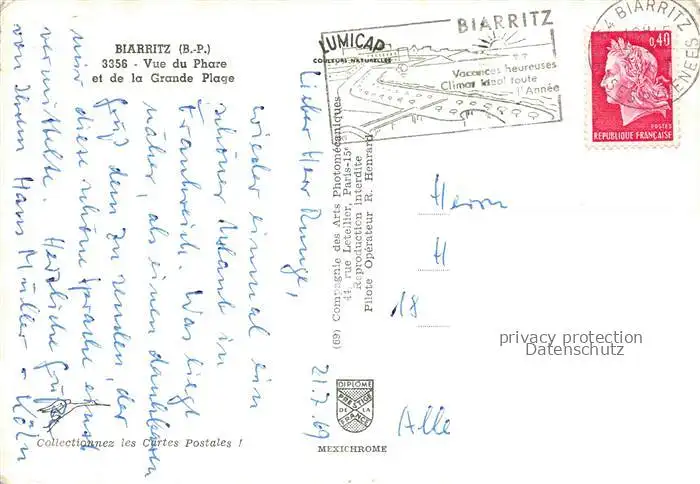 BIARRITZ (B.-P.)
3356 - Vue du Phare
et de la Grande Plage
LUMICAP
COULEURS NATURELLES
BIARRITZ
Vacances heureuses
Climat idéal toute
l'Année
BIARRITZ
0,40
POSTES
REPUBLIQUE FRANÇAISE
Lieber Herr Runge,
wieder einmal ein
schöner Urlaub in
Frankreich. Was liegt
näher, als einen dankbaren
Gruß dem zu senden, der
mir diese schöne Sprache einst
vermittelte. Herzliche Grüße
von Ihrem Hans Müller - Köln
21.7.69
(69) Compagnie des Arts Photomécaniques
44, rue Letellier, Paris-15e
Reproduction interdite
Pilote Opérateur R. Henrard
Herrn
H
18
Alle
privacy protection
Datenschutz
DIPLOME
PRESTIGE
DE LA
FRANCE
MEXICHROME
Collectionnez les Cartes Postales !